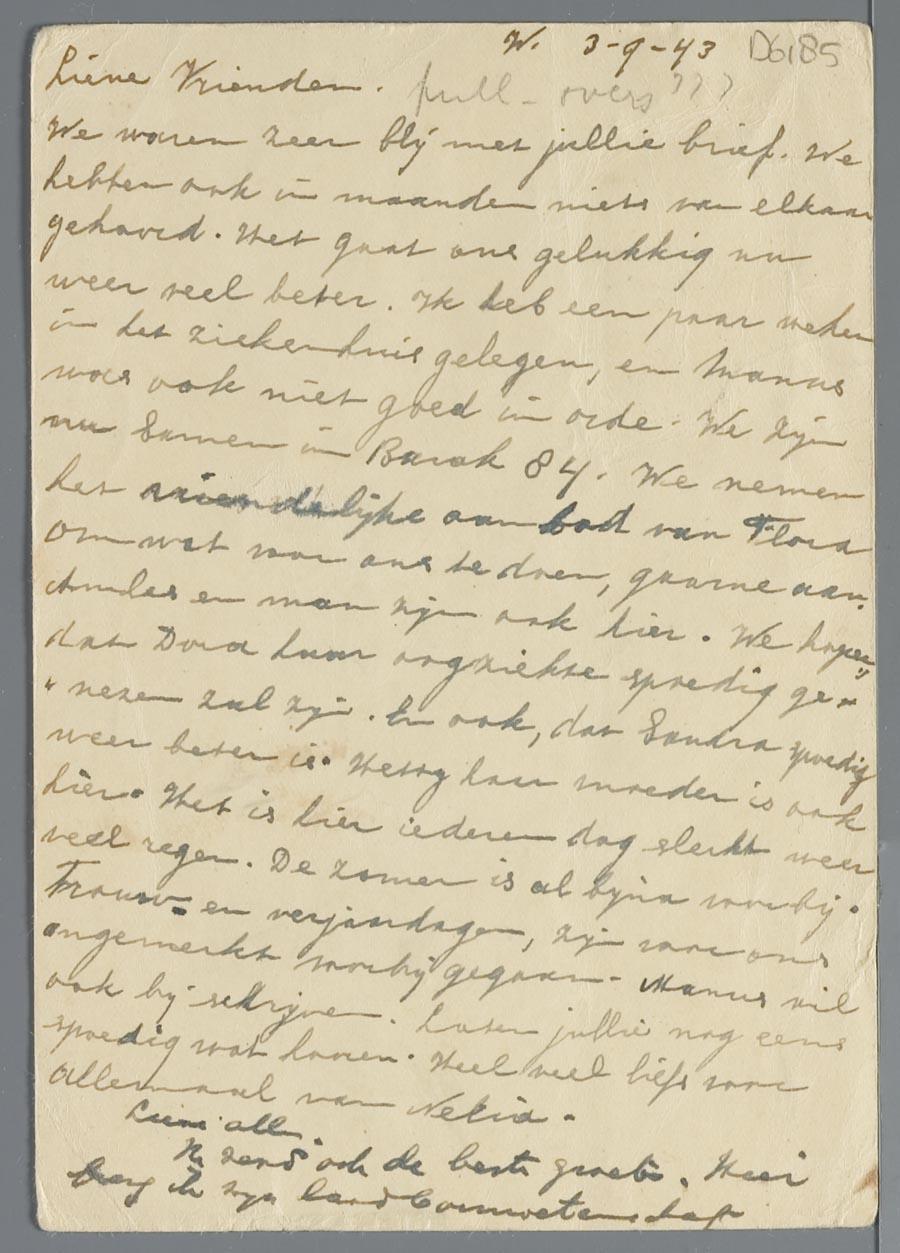 W. 3-9-43 D6185
Lieve Vrienden. pull-overs???
We waren zeer blij met jullie brief. We
hebben ook in maanden niets van elkaar
gehoord. Het gaat ons gelukkig nu
weer veel beter. Ik heb een paar weken
in het ziekenhuis gelegen, en Manus
was ook niet goed in orde. We zijn
nu Samen in Barak 84. We nemen
het vriendelijke aanbod van Flora
om wat voor ons te doen, gaarne aan.
en man zijn ook hier. We hopen,
dat Dora haar oogziekte spoedig ge-
" nezen zal zijn. En ook, dat Sandra spoedig
weer beter is. Hetty haar moeder is ook
hier. Het is hier iederen dag slecht weer
veel regen. De zomer is al bijna voorbij.
Trouw- en verjaardagen, zijn voor ons
ongemerkt voorbij gegaan. Manus wil
ook bij schrijven. Laten jullie nog eens
spoedig wat horen. Heel veel liefs voor
allemaal van
Lieve all.
Ik zend ook de beste groete. Hier
ik mijn landbouwwetenschap